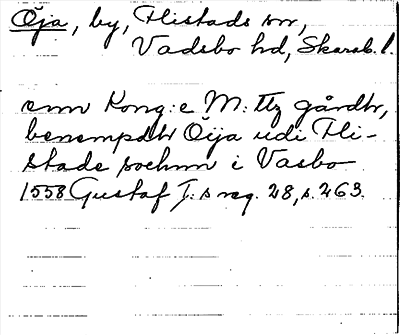 Öja, by, Flistads sn,
Vadsbo hd, Skarab. l.
enn Kong:e M:ttz gårdtz,
benempdtz Öija udi Fli-
stade sochnn i Vasbo
1558 Gustaf I:s reg. 28, s. 263.